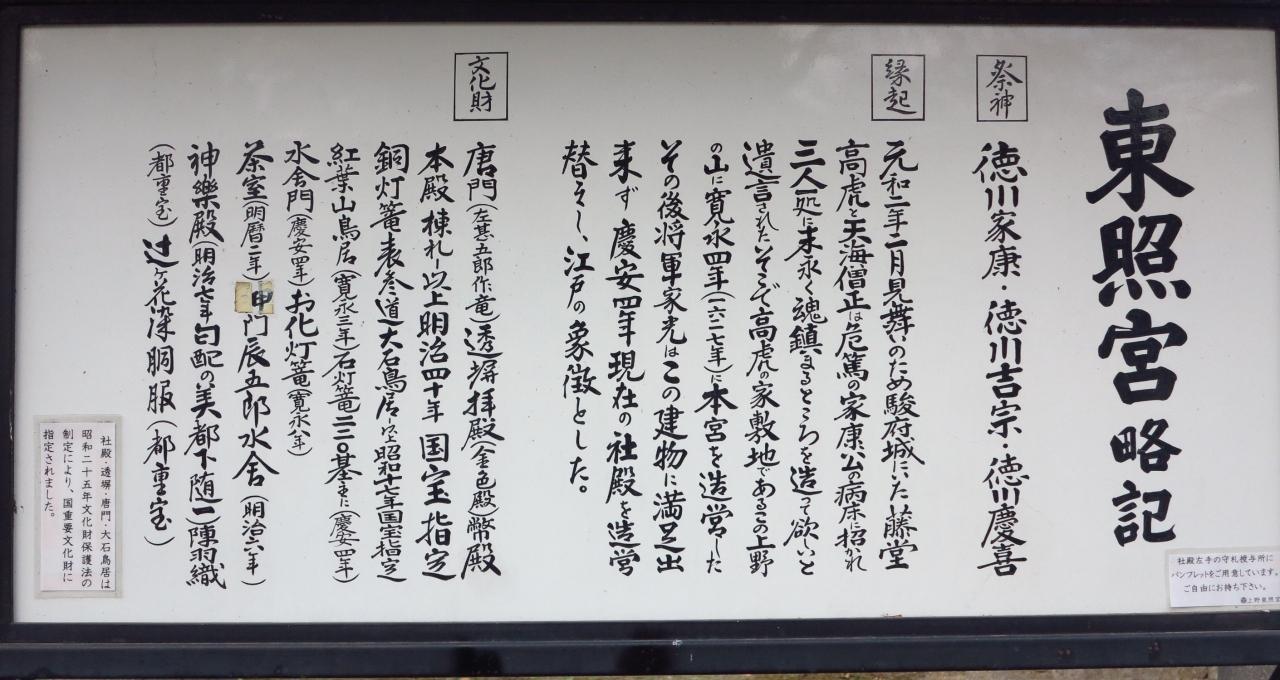 東照宮略記
祭神
徳川家康・徳川吉宗・徳川慶喜
縁起
元和二年二月見舞いのため駿府城にいた藤堂
高虎と天海僧正は危篤の家康公の病床に招かれ
三人一処に末永く魂鎮まるところを造って欲いと
遺言されたそこで高虎の家敷地であるこの上野
の山に寛永四年(一六二七年)に本宮を造営した
その後将軍家光はこの建物に満足出
来ず慶安四年現在の社殿を造営
替えし、江戸の象徴とした。
文化財
唐門(左甚五郎作竜)透塀拝殿(金色殿)幣殿
本殿棟札以上明治四十年国宝指定
銅灯篭表参道大石鳥居以上昭和十七年国宝指定
紅葉山鳥居(寛永三年)石灯篭二二〇基主に(慶安四年)
水舎門(慶安四年)お化灯篭(寛永八年)
茶室(明暦二年)申門辰五郎水舎(明治六年)
神樂殿(明治七年勾配の美都下随一)陣羽織
(都重宝)辻ヶ花染胴服(都重宝)
社殿・透塀・唐門・大石鳥居は
昭和二十五年文化財保護法の
制定により、国重要文化財に
指定されました。
社殿左手の守札授与所に
パンフレットをご用意しています。
ご自由にお持ち下さい。
上野東照宮